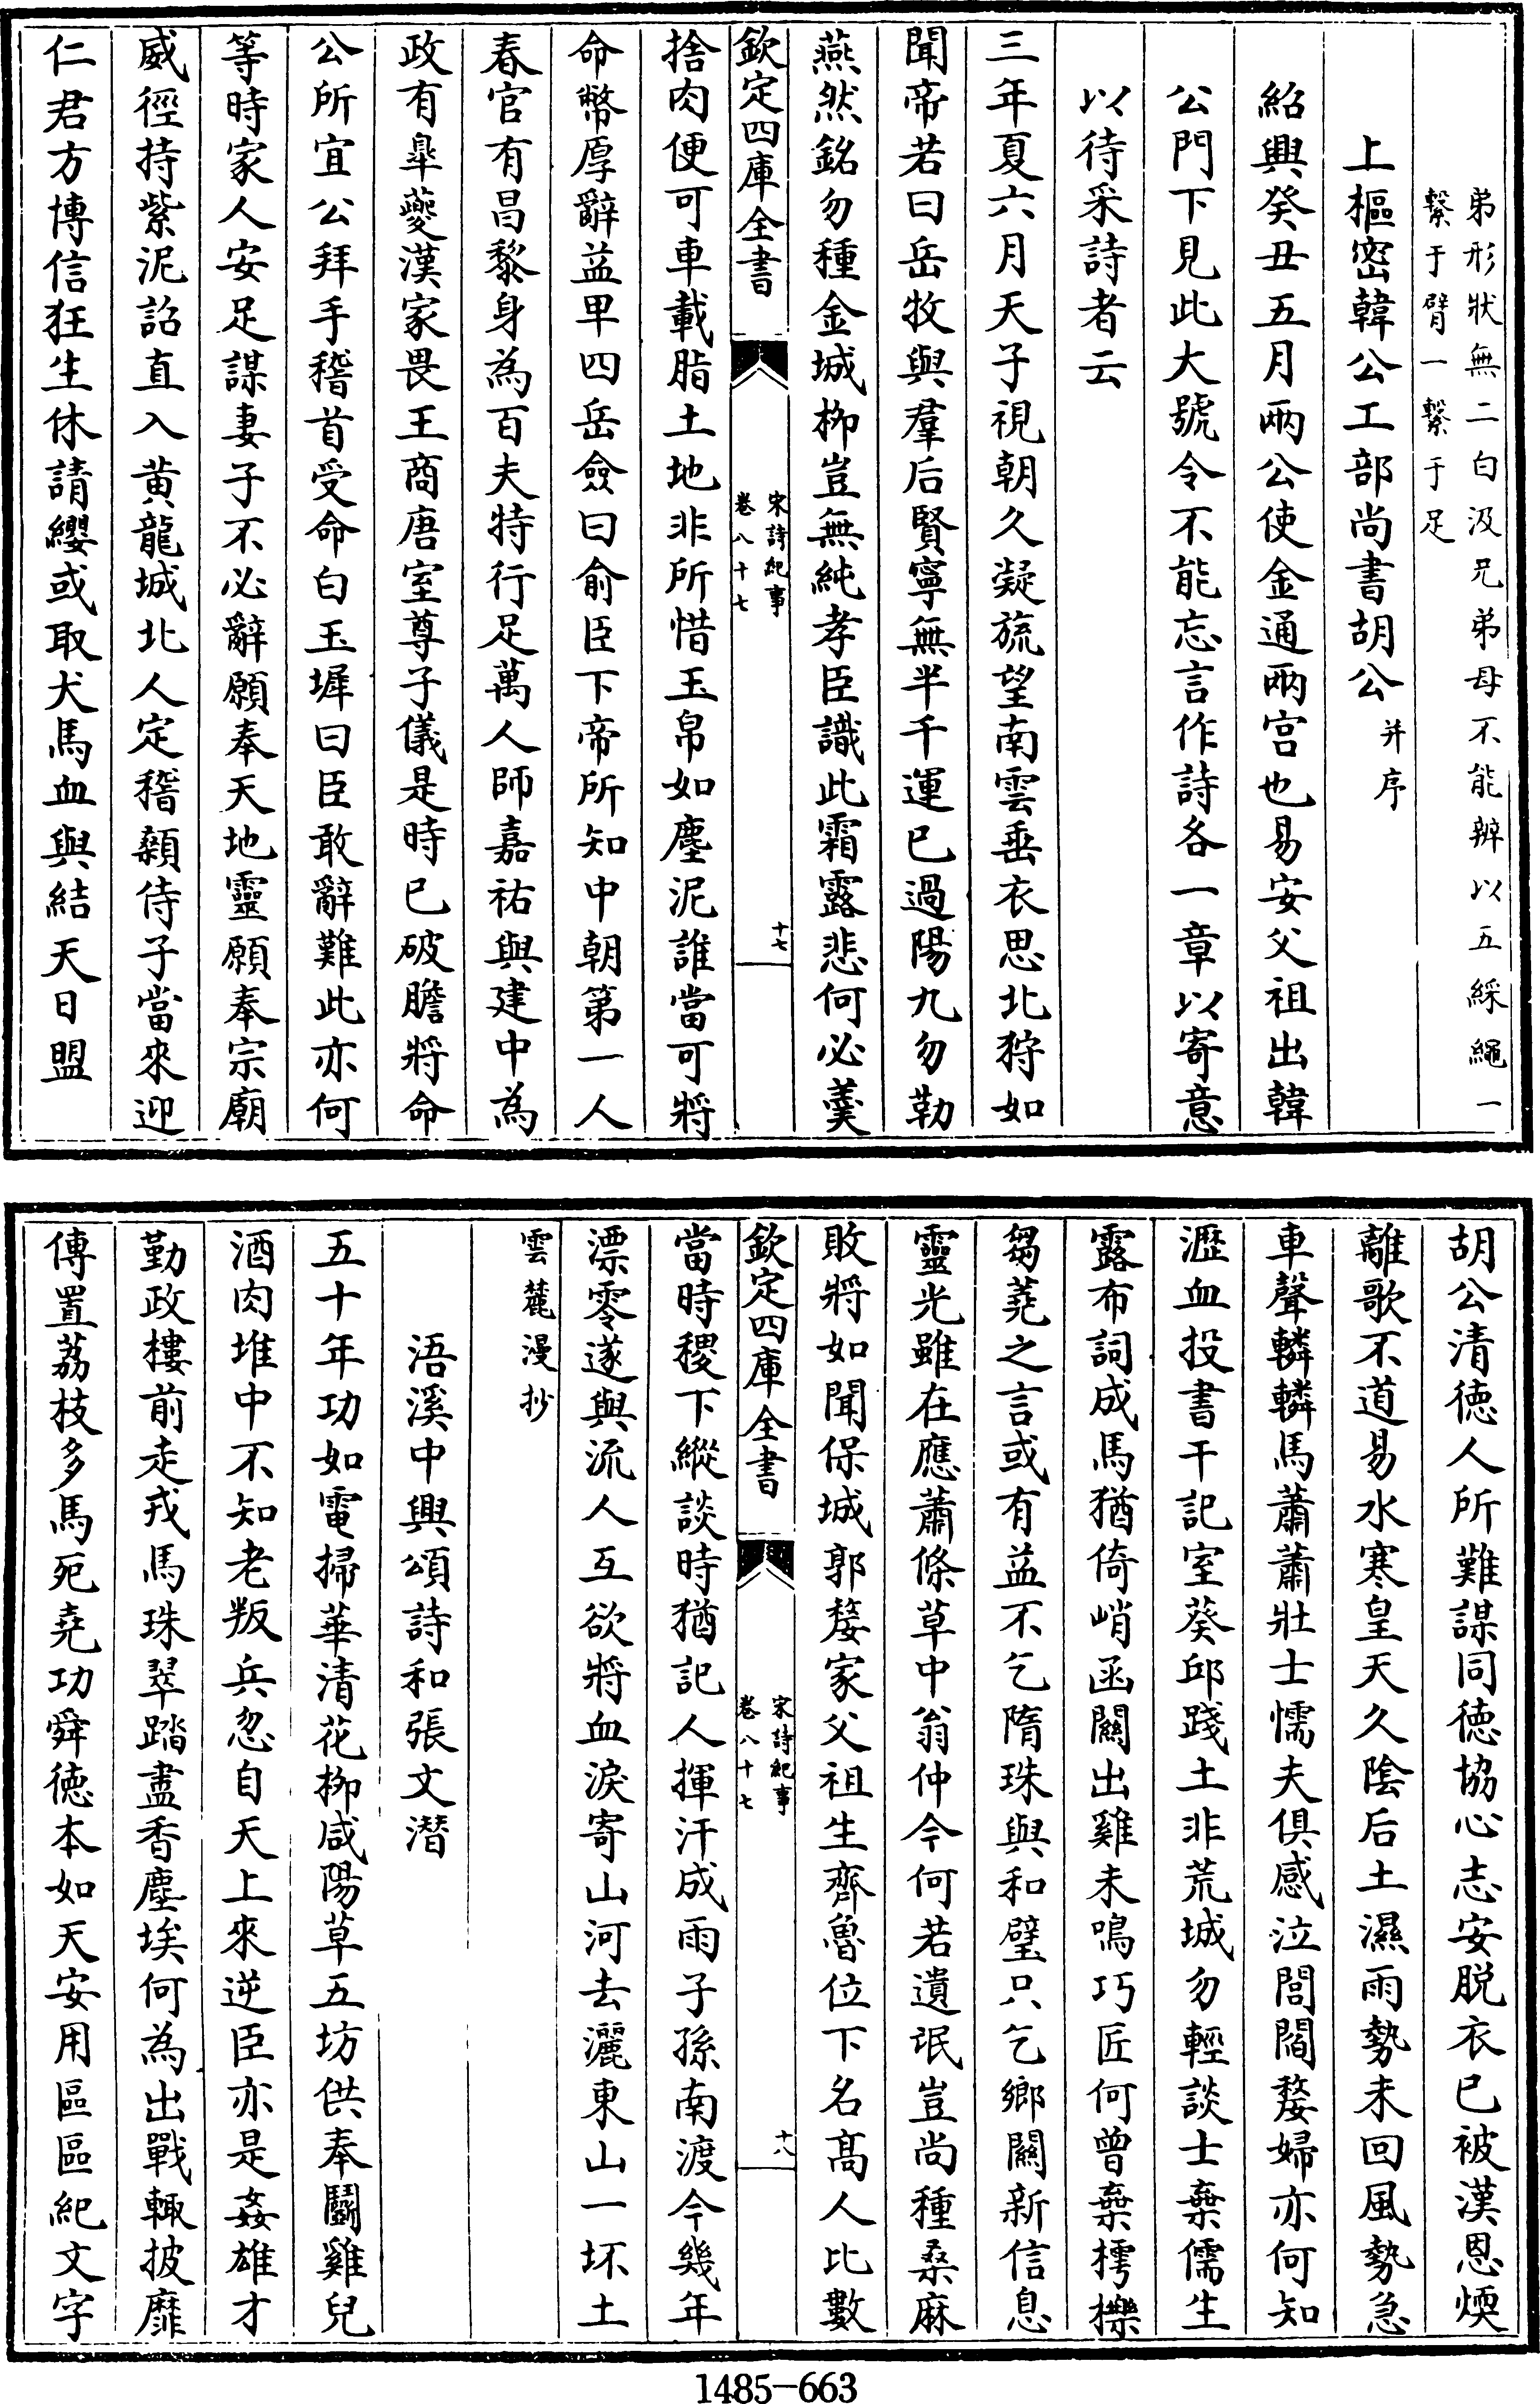 弟形狀無二白汲兄弟母不能辨以五綵繩一
繫于臂一繫于足
上樞密韓公工部尚書胡公并序
紹興癸丑五月兩公使金通兩宮也易安父祖出韓
公門下見此大號令不能忘言作詩各一章以寄意
以待采詩者云
三年夏六月天子視朝久凝旒望南雲垂衣思北狩如
聞帝若曰岳牧與羣后賢寧無半千運已過陽九勿勒
燕然銘勿種金城柳豈無純孝臣識此霜露悲何必羹
欽定四庫全書
宋詩紀事
卷八十七
十七
捨肉便可車載脂土地非所惜玉帛如塵泥誰當可將
命幣厚辭益卑四岳僉曰俞臣下帝所知中朝第一人
春官有昌黎身為百夫特行足萬人師嘉祐與建中為
政有皋夔漢家畏王商唐室尊子儀是時已破膽將命
公所宜公拜手稽首受命白玉墀曰臣敢辭難此亦何
等時家人安足謀妻子不必辭願奉天地靈願奉宗廟
威徑持紫泥詔直入黃龍城北人定稽顙侍子當來迎
仁君方博信狂生休請纓或取犬馬血與結天日盟
胡公清德人所難謀同德協心志安脱衣已被漢恩煗
離歌不道易水寒皇天久陰后土濕雨勢未回風勢急
車聲轔轔馬蕭蕭壯士懦夫俱感泣閭閻嫠婦亦何知
瀝血投書干記室葵邱踐土非荒城勿輕談士棄儒生
露布詞成馬猶倚崤函關出雞未鳴巧匠何曾棄樗櫟
芻蕘之言或有益不乞隋珠與和璧只乞鄉關新信息
靈光雖在應蕭條草中翁仲今何若遺氓豈尚種桑麻
敗將如聞保城郭嫠家父祖生齊魯位下名髙人比數
欽定四庫全書
宋詩紀事
卷八十七
十八
當時稷下縱談時猶記人揮汗成雨子孫南渡今幾年
漂零遂與流人互欲將血淚寄山河去灑東山一坏土
雲麓漫抄
浯溪中興頌詩和張文潛
五十年功如電掃華清花柳咸陽草五坊供奉鬬雞兒
酒肉堆中不知老叛兵忽自天上來逆臣亦是姦雄才
勤政樓前走戎馬珠翠踏盡香塵埃何為出戰輒披靡
傳置荔枝多馬死堯功舜德本如天安用區區紀文字
1485-663